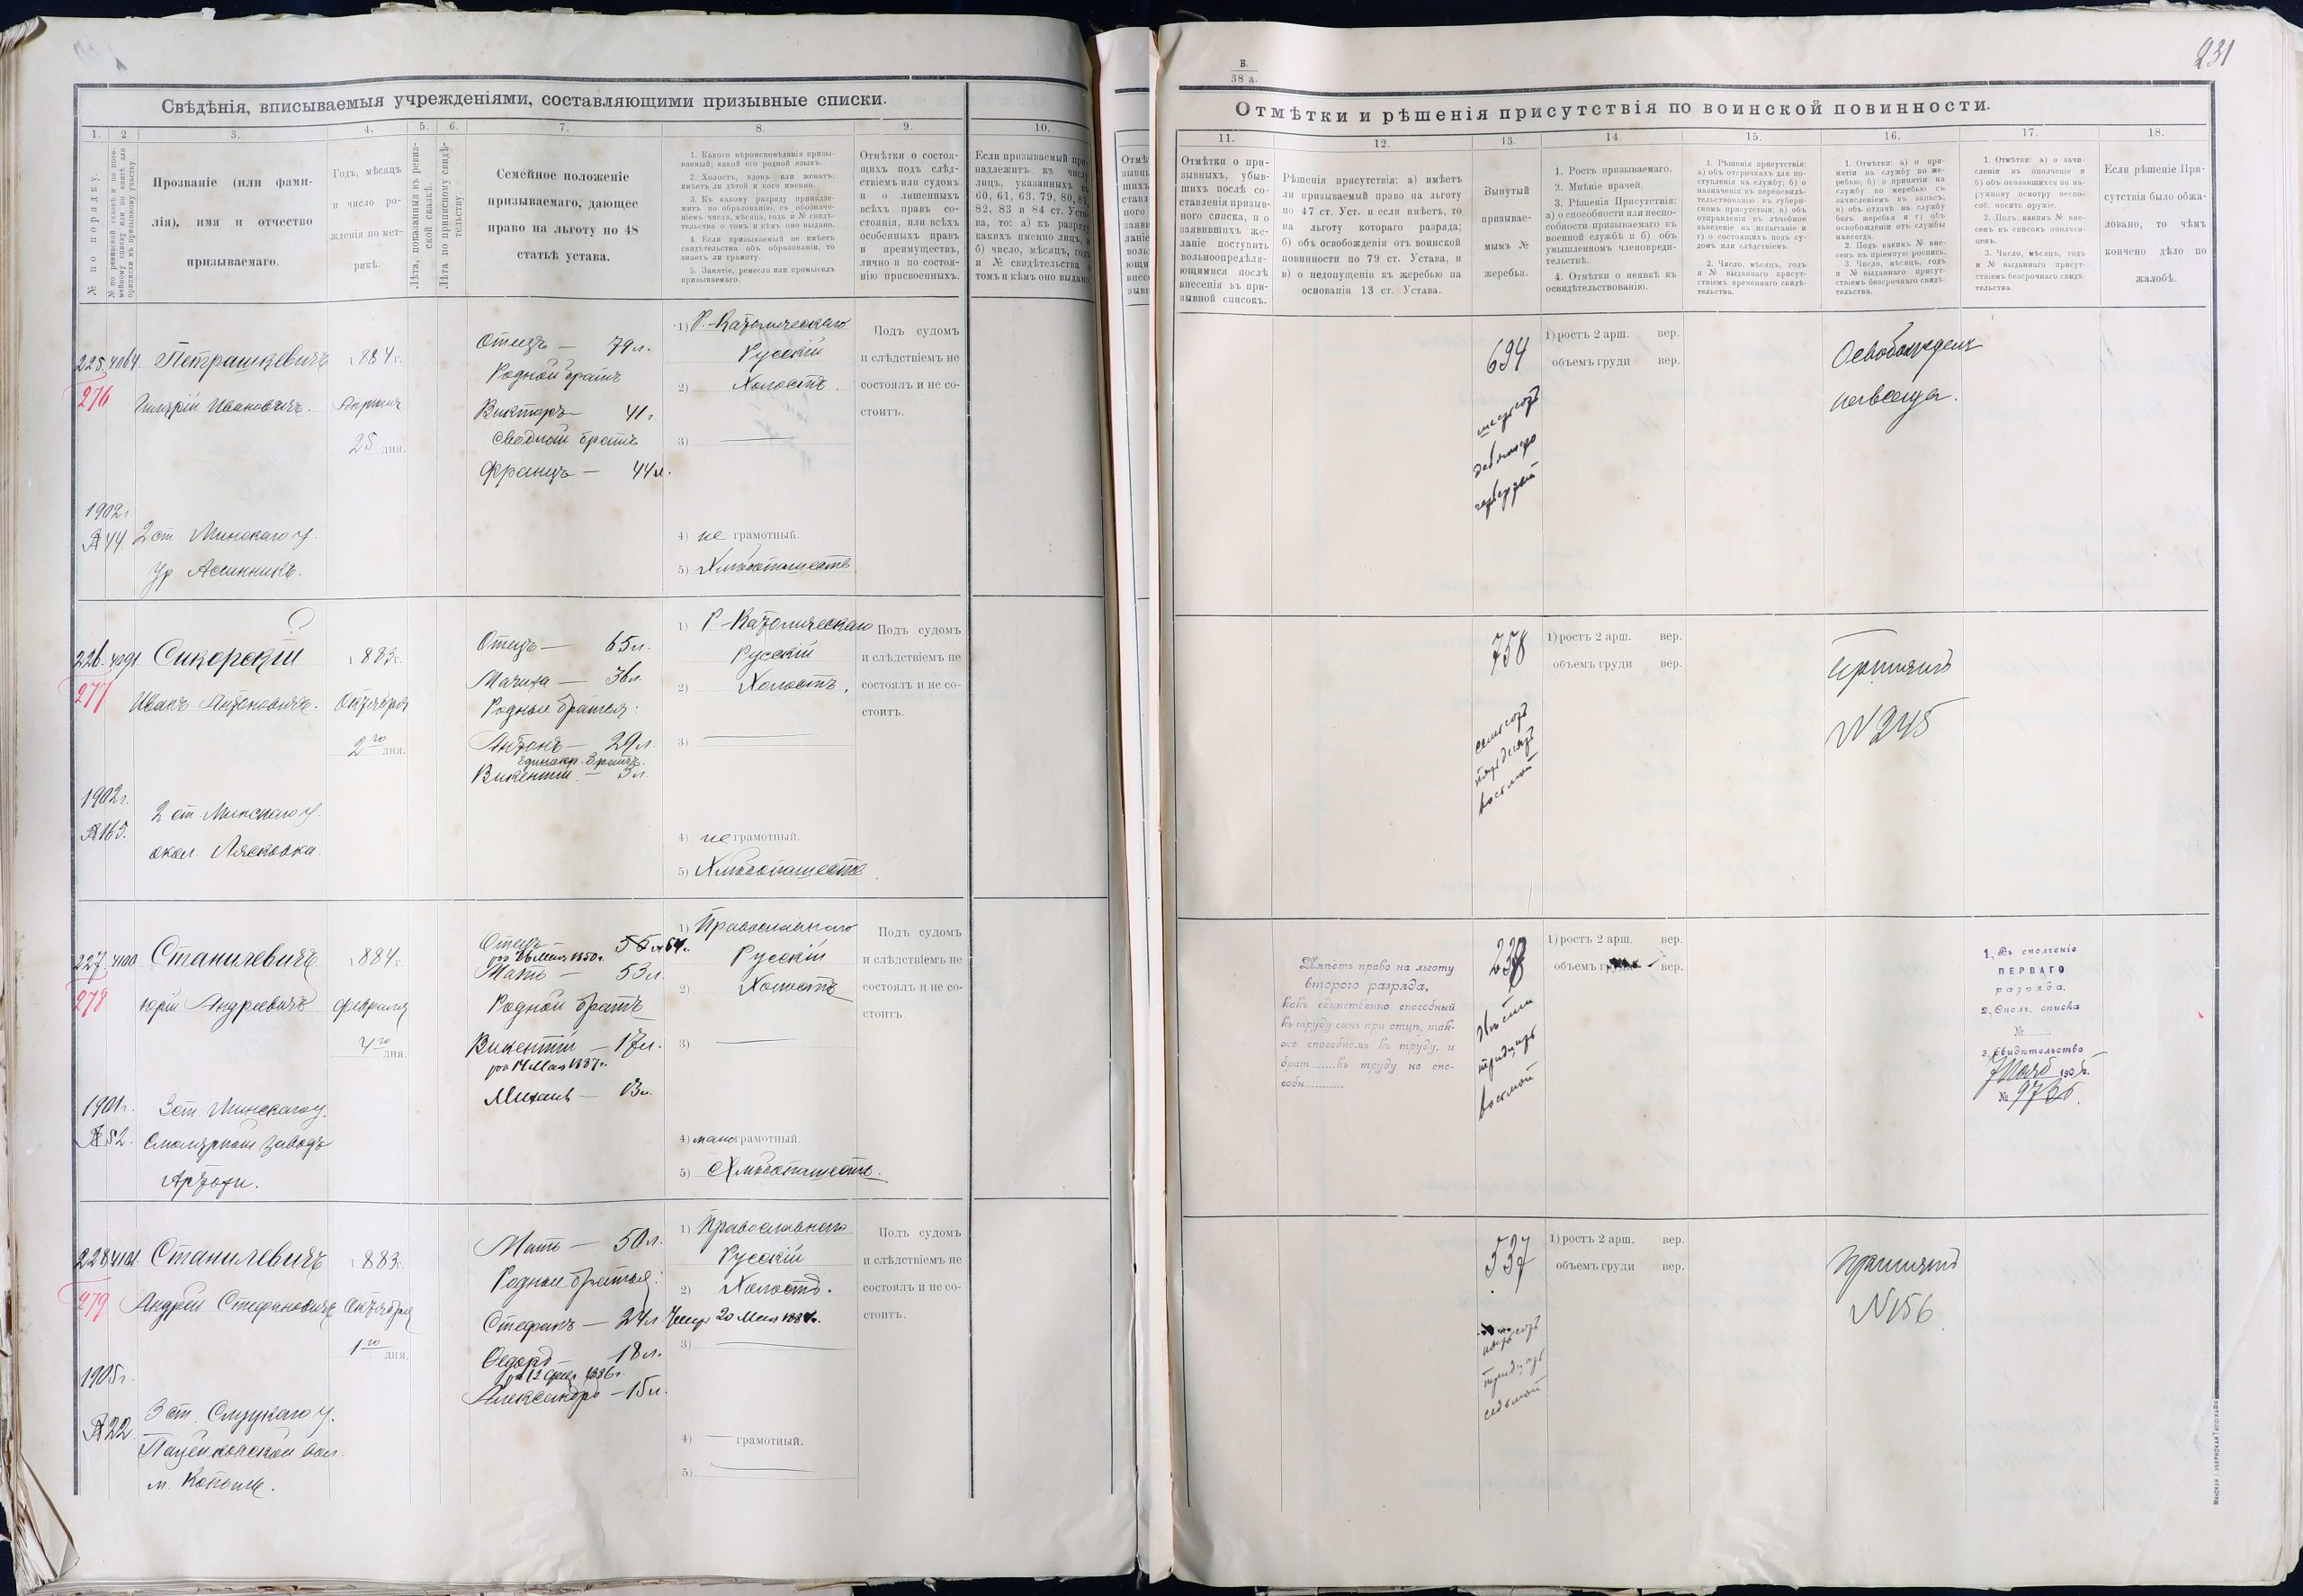 231
В.
38 а.
Свѣдѣнія, вписываемыя учрежденіями, составляющими призывные списки.
1.
2
3.
4.
5.
6.
7.
8.
9.
10.
№ по порядку.
Прозваніе (или фами-
лія), имя и отчество
призываемаго.
Годъ, мѣсяцъ
и число ро-
жденія по мет-
рикѣ.
Лѣта, показанныя въ ревиз-
ской сказкѣ.
Лѣта по приписному свидѣ-
тельству.
Семейное положеніе
призываемаго, дающее
право на льготу по 48
статьѣ устава.
1. Какого вѣроисповѣданія призы-
ваемый; какой его родной языкъ.
2. Холостъ, вдовъ или женатъ;
имѣетъ ли дѣтей и кого именно.
3. Къ какому разряду принадле-
житъ по образованію, съ обозначе-
ніемъ числа, мѣсяца, года и № свидѣ-
тельства о томъ и кѣмъ оно выдано.
4. Если призываемый не имѣетъ
свидѣтельства объ образованіи, то
знаетъ ли грамоту.
5. Занятіе, ремесло или промыселъ
призываемаго.
Отмѣтки о состоя-
щихъ подъ слѣд-
ствіемъ или судомъ
и о лишенныхъ
всѣхъ правъ со-
стоянія, или всѣхъ
особенныхъ правъ
и преимуществъ,
лично и по состоя-
нію присвоенныхъ.
Если призываемый при-
надлежитъ къ числу
лицъ, указанныхъ въ
60, 61, 63, 79, 80, 81,
82, 83 и 84 ст. Уста-
ва, то: а) къ разряду
какихъ именно лицъ, и
б) число, мѣсяцъ, годъ
и № свидѣтельства о
томъ и кѣмъ оно выдано.
225. 4064. Петрашкевичъ 1884 г.
276
Иванов­ичъ. Апрѣля
25 дня.
1902 г.
№ 44. 2 ст. Минскаго у.
ур Асинникъ.
Отецъ — 79 л.
Родной братъ
Викторъ — 41 г.
Сводный братъ
Францъ — 44 л.
1) Р.-Католическаго
Русскій
2) Холостъ.
3)
4) не грамотный.
5) Хлѣбопашество.
Подъ судомъ
и слѣдствіемъ не
состоялъ и не со-
стоитъ.
226. Сикорскій 1883 г.
277
Иванъ Антоновичъ. Октября
2го дня.
1902 г.
№ 165.
2 ст. Минскаго у.
окол. Лясковка.
Отецъ — 65 л.
Мачиха — 36 л.
Родные братья:
Антонъ — 29 л.
единокр. братъ.
Викентій — 3 л.
1) Р.-Католическаго
Русскій
2) Холостъ.
3)
4) не грамотный.
5) Хлѣбопашество.
Подъ судомъ
и слѣдствіемъ не
состоялъ и не со-
стоитъ.
227. 4100 Станилевичъ 1884 г.
278
Юрій Андреевичъ Февраля
4го дня.
1901 г.
№ 52.
3 ст. Минскаго у.
Смолярный заводъ
Отецъ
род 26 Мая 1850 г.
Мать — 53 л.
Родной братъ
Викентій — 17 л.
род 14 Мая 1887 г.
Михаилъ — 13 л.
1) Православнаго
Русскій
2) Холостъ
3)
4) малограмотный.
5) Хлѣбопашество.
Подъ судомъ
и слѣдствіемъ не
состоялъ и не со-
стоитъ.
228. Станилевичъ 1883 г.
279
Андрей Стефановичъ Октября
1го дня.
1905 г.
№ 22.
3 ст. Слуцкаго у.
вол.
м. Копыль.
Мать — 50 л.
Родные братья:
Стефанъ — 24 л. 20 Мая
Ѳедоръ — 18 л.
Александръ — 15 л.
1) Православнаго
Русскій
2) Холостъ.
3)
4) грамотный.
5)
Подъ судомъ
и слѣдствіемъ не
состоялъ и не со-
стоитъ.
Отмѣтки и рѣшенія присутствія по воинской повинности.
11.
12.
13.
14.
15.
16.
17.
18.
Отмѣтки о при-
зывныхъ, убыв-
шихъ послѣ со-
ставленія призыв-
ного списка, и о
заявившихъ же-
ланіе поступить
вольноопредѣля-
ющимися послѣ
внесенія въ при-
зывной списокъ.
Рѣшенія присутствія: а) имѣетъ
ли призываемый право на льготу
по 47 ст. Уст. и если имѣетъ, то
на льготу котораго разряда;
б) объ освобожденіи отъ воинской
повинности по 79 ст. Устава, и
в) о недопущеніи къ жеребью на
основаніи 13 ст. Устава.
Вынутый
призывае-
мымъ №
жеребья.
1. Ростъ призываемаго.
2. Мнѣніе врачей.
3. Рѣшенія Присутствія:
а) о способности или неспо-
собности призываемаго къ
военной службѣ и б) объ
умышленномъ членовреди-
тельствѣ.
4. Отмѣтки о неявкѣ къ
освидѣтельствованію.
1. Рѣшенія присутствія:
а) объ отсрочкахъ для по-
ступленія на службу; б) о
назначеніи къ переосвидѣ-
тельствованію въ губерн-
скомъ присутствіи; в) объ
отправленіи въ лѣчебное
заведеніе на испытаніе и
г) о состоящихъ подъ су-
домъ или слѣдствіемъ.
2. Число, мѣсяцъ, годъ
и № выданнаго присут-
ствіемъ временнаго свидѣ-
тельства.
1. Отмѣтки: а) о при-
нятіи на службу по же-
ребью; б) о принятіи на
службу по жеребью съ
зачисленіемъ въ запасъ;
в) объ отдачѣ на службу
безъ жеребья и г) объ
освобожденіи отъ службы
навсегда.
2. Подъ какимъ № вне-
сенъ въ пріемную роспись.
3. Число, мѣсяцъ, годъ
и № выданнаго присут-
ствіемъ безсрочнаго свидѣ-
тельства.
1. Отмѣтки: а) о зачи-
сленіи въ ополченіе и
б) объ оказавшихся по на-
ружному осмотру неспо-
соб. носить оружіе.
2. Подъ какимъ № вне-
сенъ въ списокъ ополчен-
цевъ.
3. Число, мѣсяцъ, годъ
и № выданнаго присут-
ствіемъ безсрочнаго свидѣ-
тельства.
Если рѣшеніе При-
сутствія было обжа-
ловано, то чѣмъ
кончено дѣло по
жалобѣ.
694
шестьсотъ
девяносто
четвертый
1) ростъ 2 арш. вер.
объемъ груди вер.
Освобожденъ
навсегда.
758
семьсотъ
пятьдесятъ
восьмой
1) ростъ 2 арш. вер.
объемъ груди вер.
Принятъ
№ 245
Имѣетъ право на льготу
второго разряда,
какъ единственно способный
къ труду сынъ при отцѣ, так-
же способномъ къ труду, и
брат..... къ труду не спо-
собн.....
238
двѣсти
тридцать
восьмой
1) ростъ 2 арш. вер.
объемъ груди вер.
1. Въ ополченіе
ПЕРВАГО
разряда.
2. Ополч. списка
№
3. Свидѣтельство
537
пятьсотъ
тридцать
седьмой
1) ростъ 2 арш. вер.
объемъ груди вер.
Принятъ
№ 156
Минская Губернская Типографія